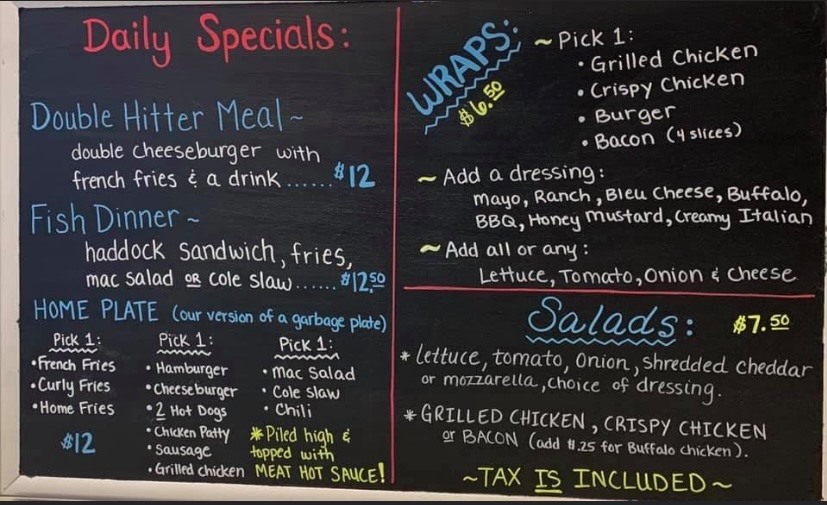 Daily Specials:
Double Hitter Meal ~
double cheeseburger with
french fries & a drink ...... $12
Fish Dinner ~
haddock sandwich, fries,
mac salad OR cole slaw ...... $12.50
HOME PLATE (our version of a garbage plate)
Pick 1:
• French Fries
• Curly Fries
• Home Fries
$12
Pick 1:
• Hamburger
• Cheeseburger
• 2 Hot Dogs
• Chicken Patty
• Sausage
• Grilled chicken
Pick 1:
• mac salad
• Cole slaw
• Chili
* Piled high &
topped with
MEAT HOT SAUCE!
WRAPS:
$6.50
~ Pick 1:
• Grilled Chicken
• Crispy Chicken
• Burger
• Bacon (4 slices)
~ Add a dressing:
mayo, Ranch, Bleu Cheese, Buffalo,
BBQ, Honey mustard, Creamy Italian
~ Add all or any:
Lettuce, Tomato, Onion & cheese
Salads: $7.50
* lettuce, tomato, onion, shredded cheddar
or mozzarella, choice of dressing.
* GRILLED CHICKEN, CRISPY CHICKEN
or BACON (add $.25 for Buffalo chicken).
~TAX IS INCLUDED~